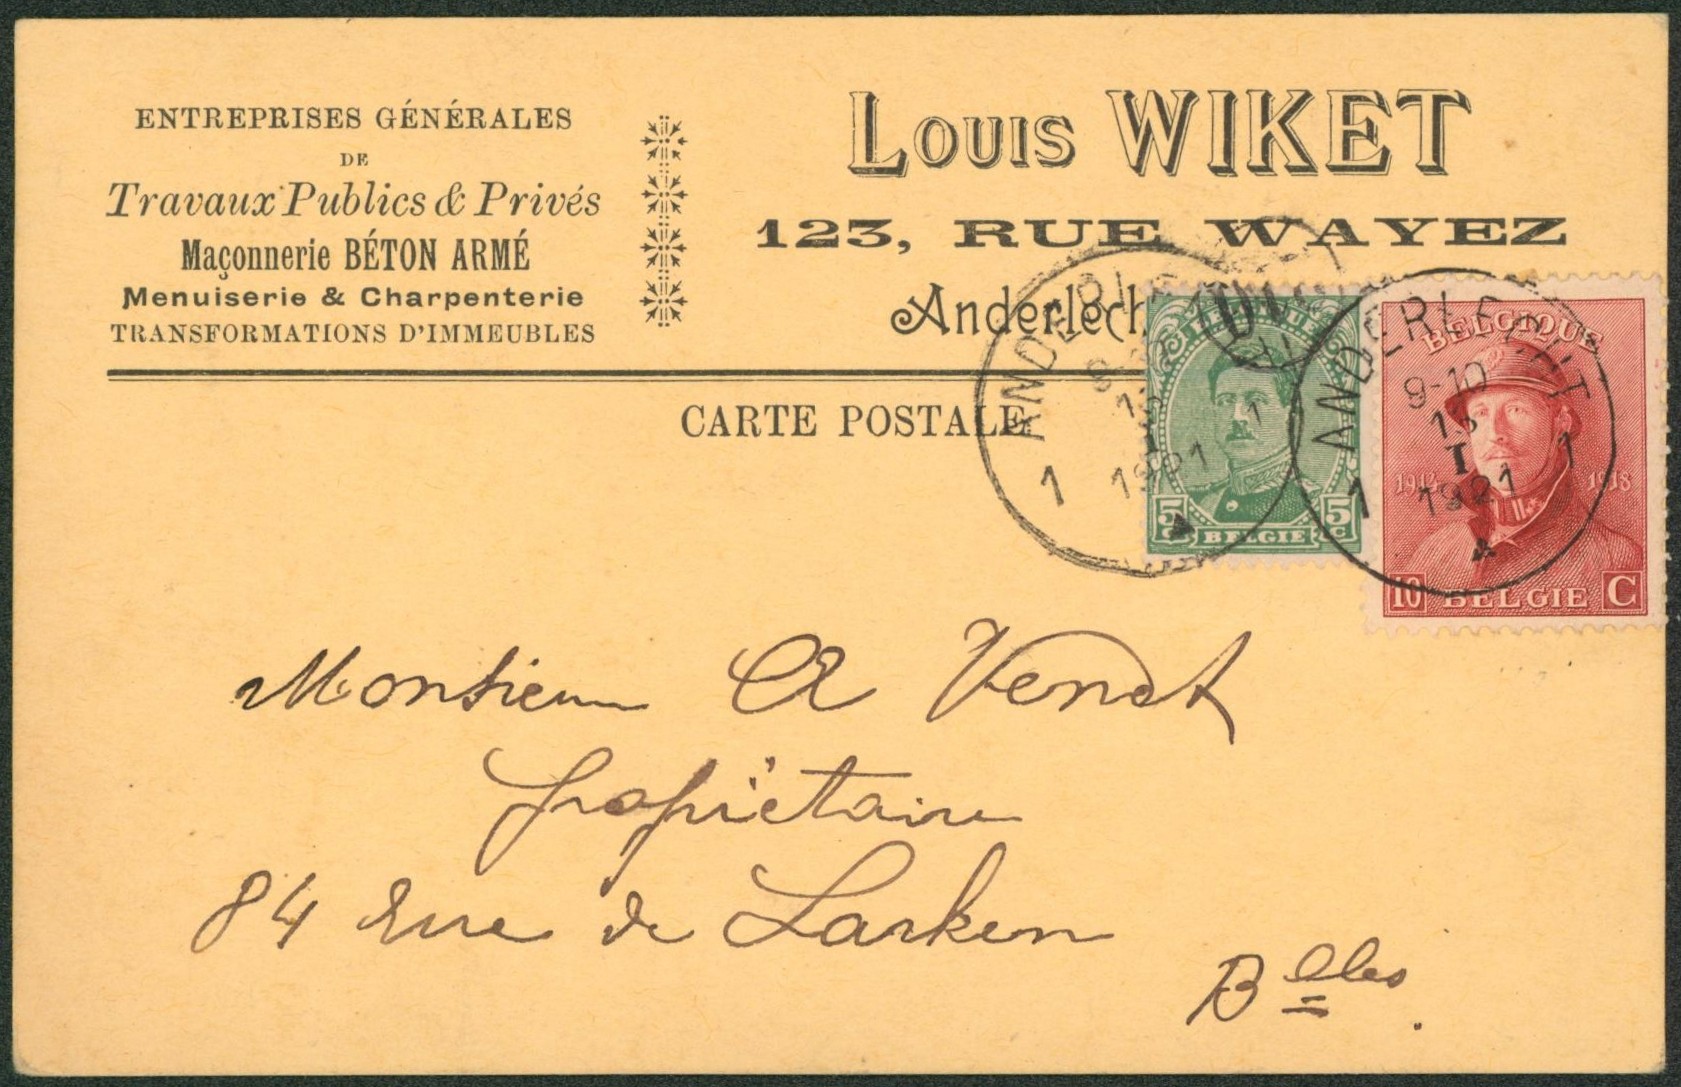 ENTREPRISES GÉNÉRALES
DE
Travaux Publics & Privés
Maçonnerie BÉTON ARMÉ
Menuiserie & Charpenterie
TRANSFORMATIONS D'IMMEUBLES
Louis WIKET
123, RUE WAYEZ
Anderlech
CARTE POSTALE
ANDERLECHT
1 1
9-10
13
I
1921
BELGIQUE
5c 5c
BELGIE
ANDERLECHT
1 1
9-10
13
I
1921
BELGIQUE
1914 1918
10 BELGIE C
Monsieur A
propriétaire
84 Rue de Larken
Blles